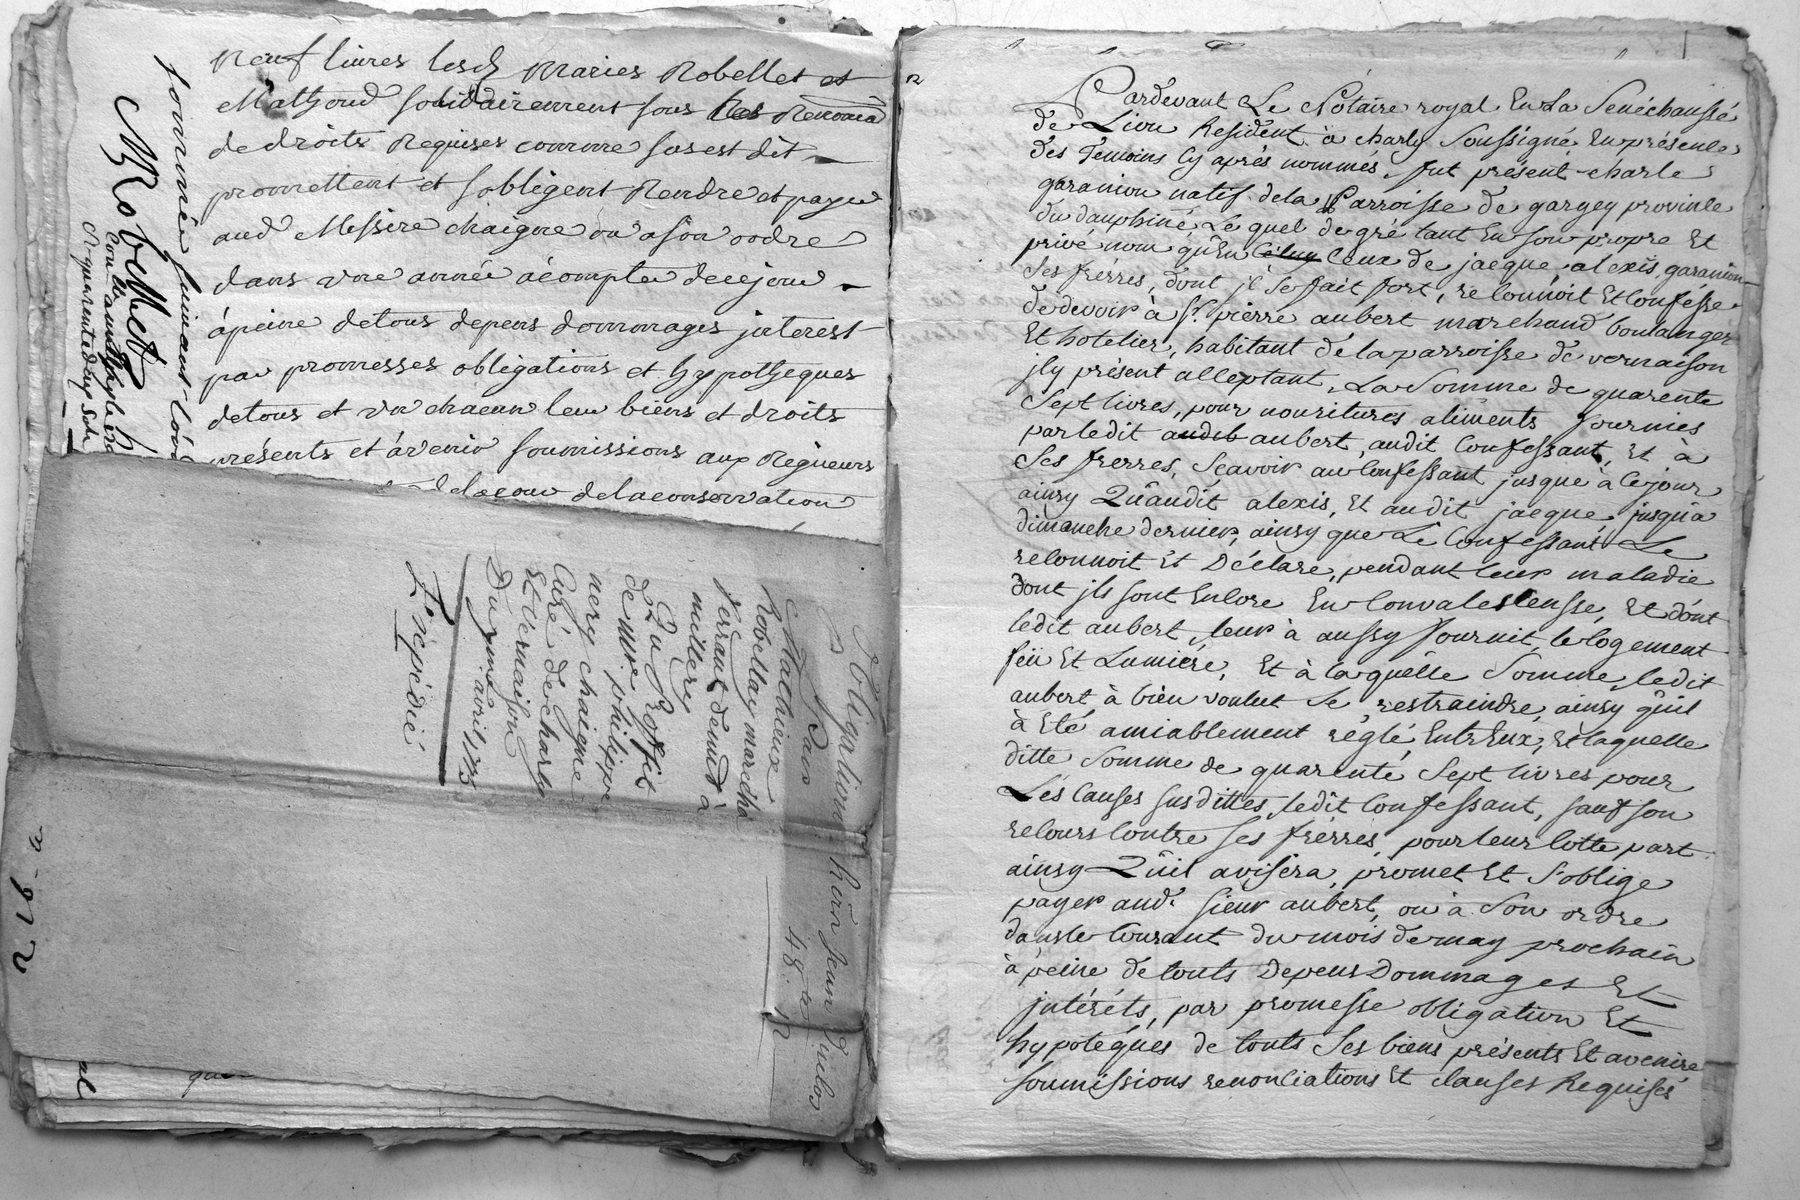 neuf livres lesd maries Robellet et
Mathoud solidairement sous les Renoncia
de droits Requises comme sus est dit
promettent et sobligent Rendre et payer
aud Messire chaigne ou a son ordre
dans une année à compter de ce jour
à peine de tous depens dommages interest
par promesses obligations et hypotheques
de tous et un chacun leur biens et droits
présents et à venir soumissions aux Rigueurs
de la cour de la conservation
somme suivant
MRobellet
Obligation
Mathieux
Robellay marchd
demt à
millery
Au Proffit
de Mre philippe
nery chaigne
Curé de charly
Et Vernaison
Du avril
Expédié
48
2
Pardevant Le Nótaire royal En La Senéchaussé
de Lion Résident à charly Soussigné En présence
des Temoins Cy aprés nommés, fut présent charle
garanion natif de la Parroisse de gargey province
du dauphiné, Le quel de gré tant En Son propre Et
privé nom qu'En Celuy Ceux de jacque, alexis, garanion
Ses frérres, dont jl Se fait fort, reconnoit Et Confésse
de devoir à Sr. piérre aubert marchand boulanger
Et hotelier, habitant de la parroisse de vernaison
jcy présent acceptant, La Somme de quarente
Sept livres, pour nouritures aliments fournies
par ledit aubert, audit Confessant, Et à
Ses frerres, Sçavoir au Confessant jusque à Ce jour
ainsy Qu'audit alexis, Et audit jacque, jusqu'a
dimanche dernier, ainsy que Le Confessant Le
reconnoit Et Déclare, pendant leur maladie
dont jls sont Encore En Convalescensse, Et dont
ledit aubert, leur à aussy fournit, le logement
feü Et Lumiére, Et à laquélle Somme, ledit
aubert à bien voulut Se restraindre, ainsy quil
à Eté amiablement réglé, Entr'Eux, Et laquelle
ditte Somme de quarenté Sept livres pour
Les Causes Susdittes, ledit Confessant, sauf son
recours Contre Ses frérres, pour leur Cotte part
ainsy Qu'il avisera, promet Et S'oblige
payer aud. Sieur aubert, ou à Son ordre
dans le Courant du mois de may prochain
à peine de touts Depens Dommages Et
jntéréts, par promesse obligation Et
hypotéqués de touts Ses biens présents Et avenire
soumissions renonciations Et clauses Requisés